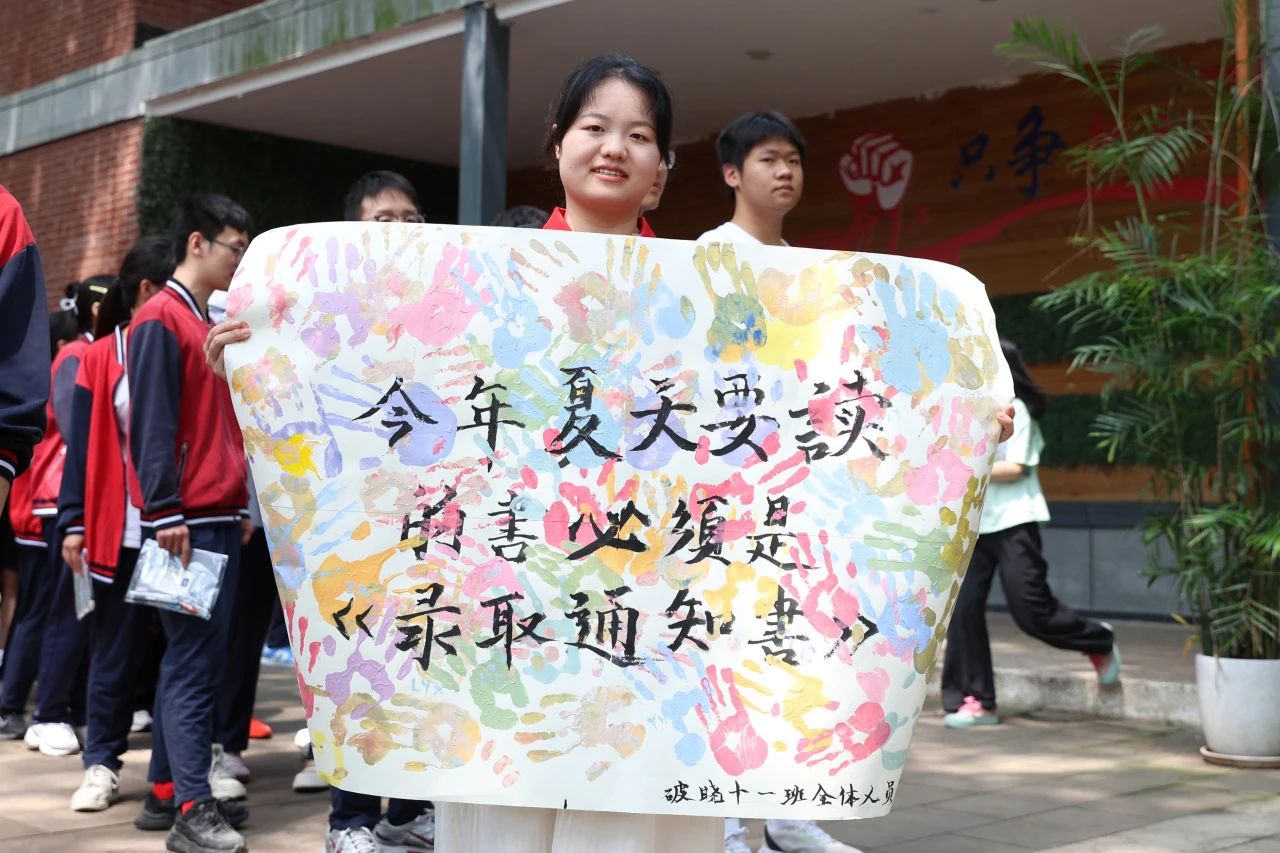 只争
今年夏天要讀
的書必須是
《录取通知書》
LYX
破晓十一班全体人员